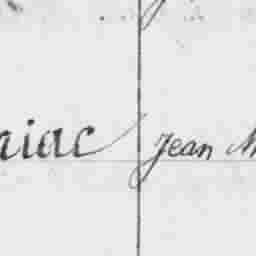 aiac Jean M